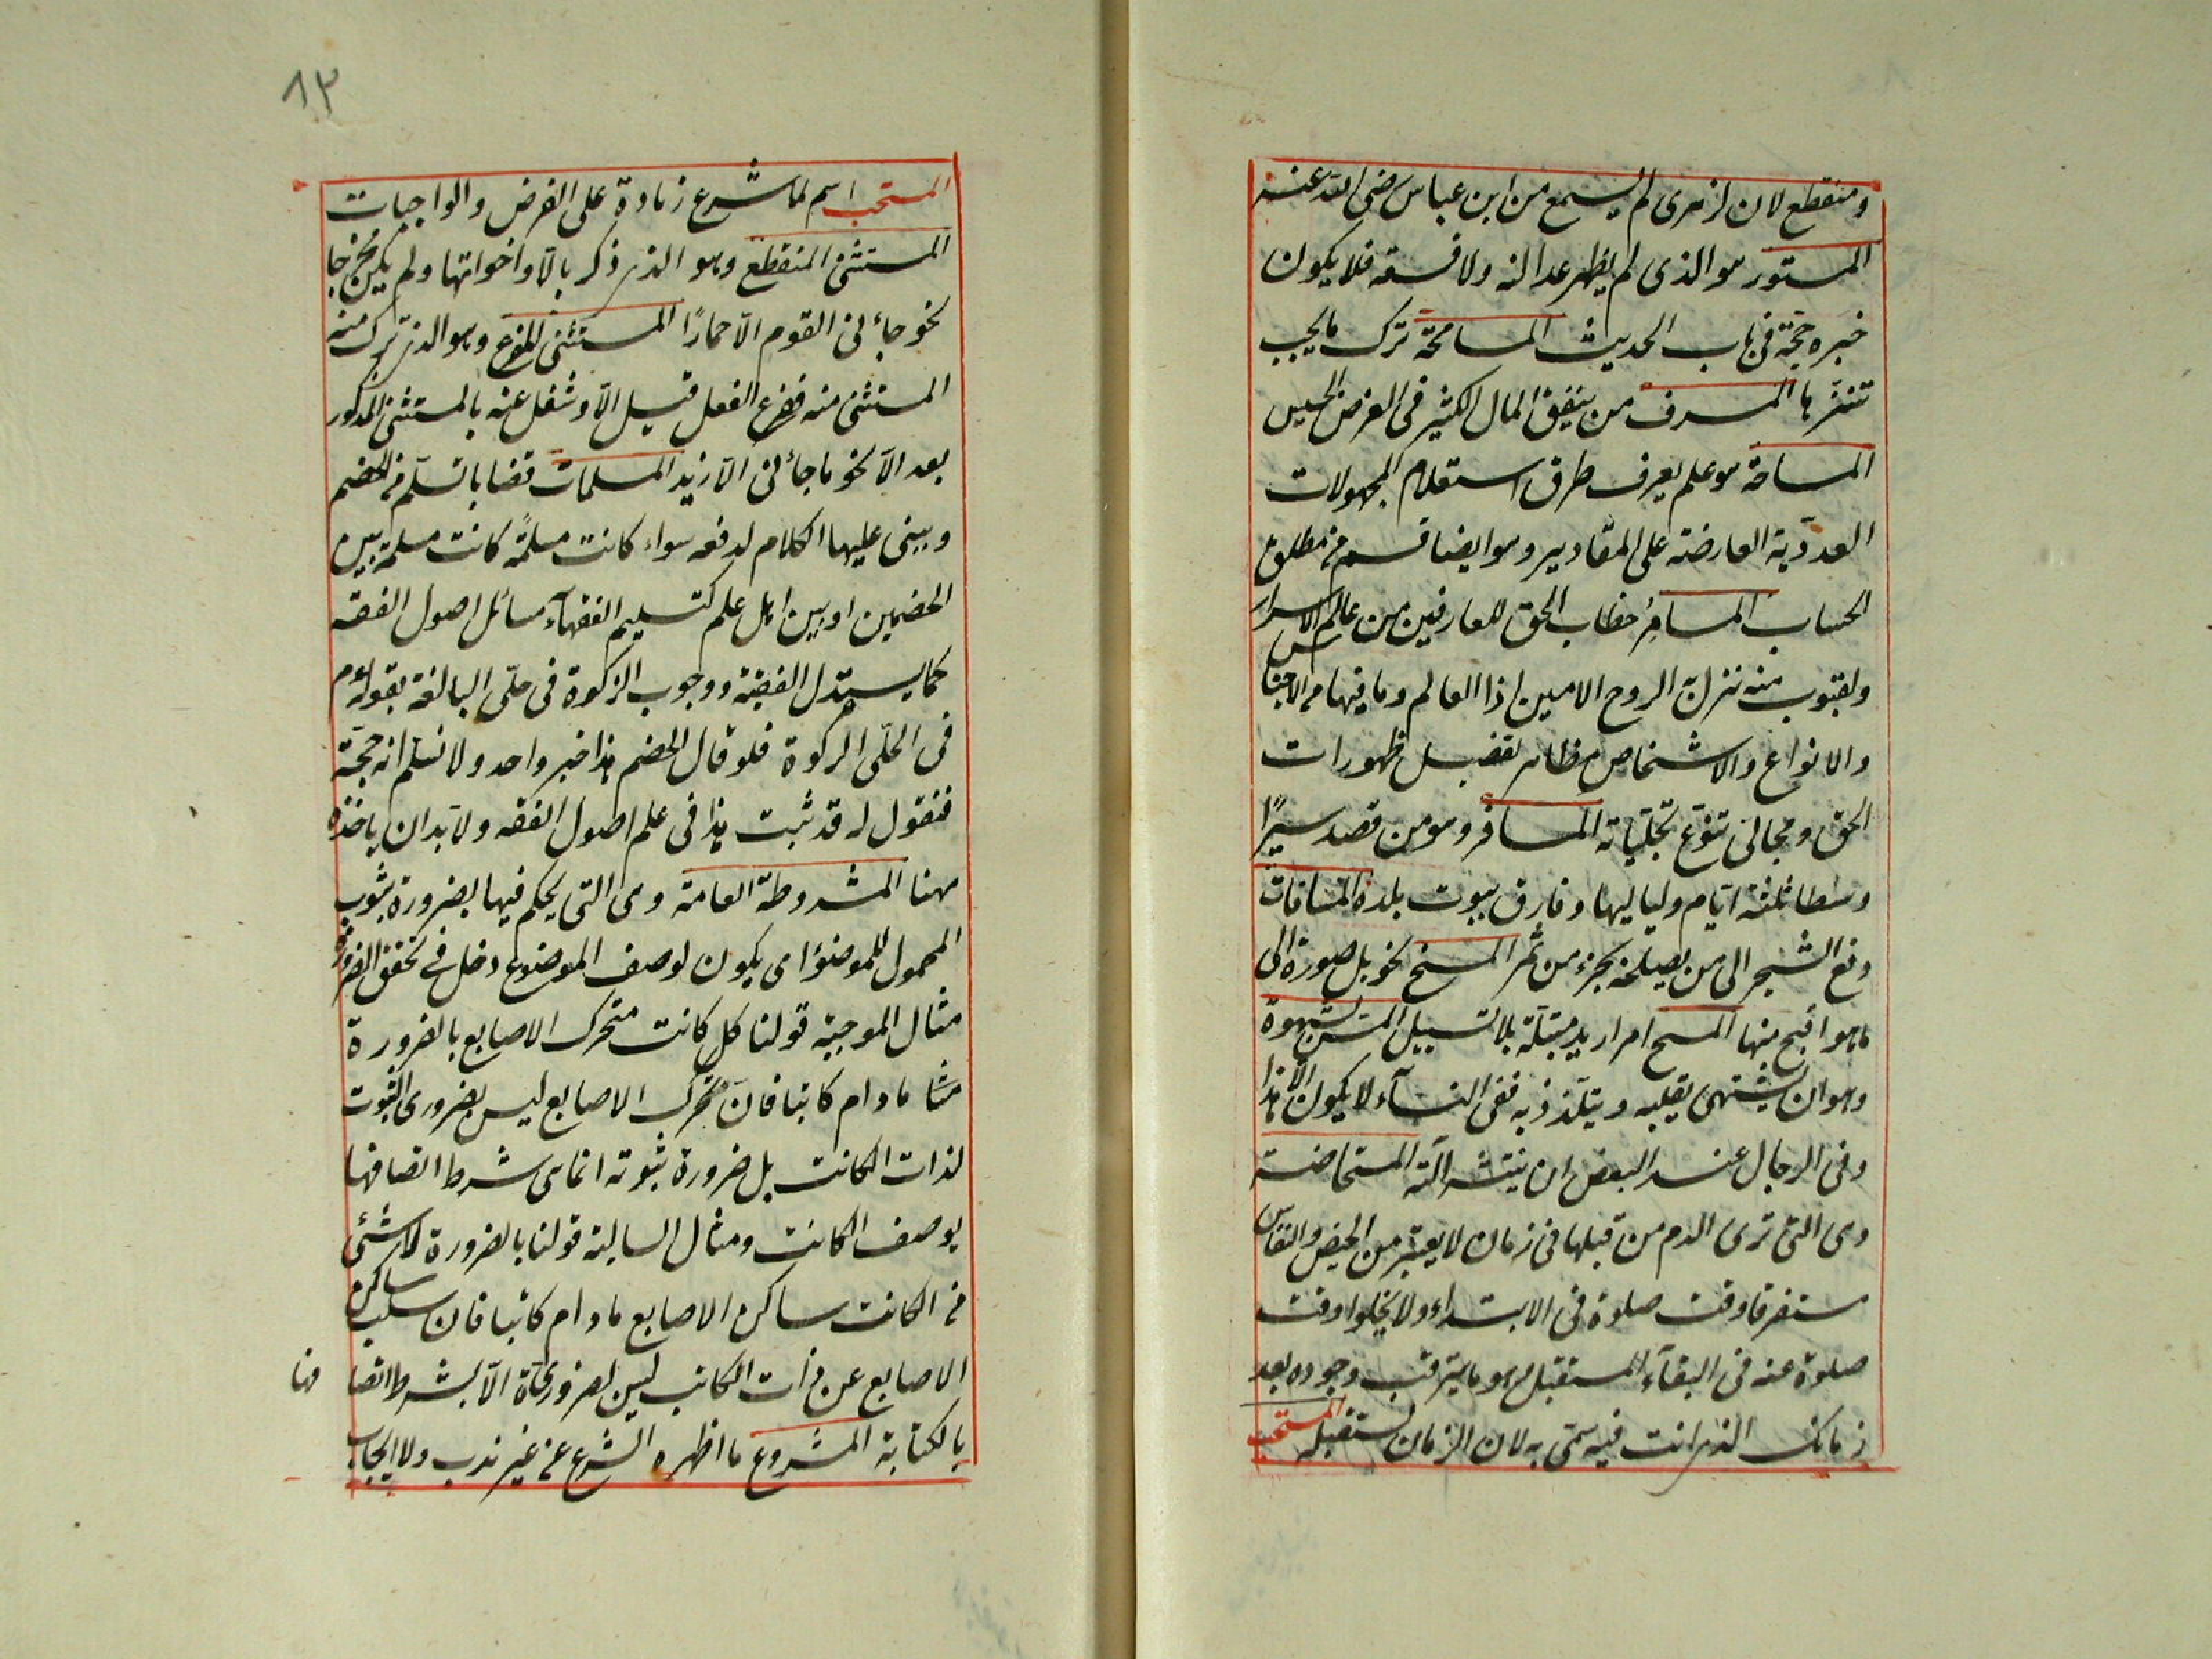 ومنقطع لان لزهرى لم يسمع من ابن عباس رضى الله عنه
المستور هو الذى لم يظهر عدالته ولا فسقه فلا يكون
خبره حجة فى باب الحديث المسامحة ترك ما يجب
تنزها المسرف من ينفق المال الكثير فى الغرض الخسيس
المساحة هو علم يعرف طرق استعلام المجهولات
العددية العارضة على المقادير وهو ايضا قسم من مطلق
الحساب المسامرُ خطاب الحق للعارفين من عالم الاسرار
والغيوب منه نزل به الروح الامين اذ العالم وما فيها من الاجناس
والانواع والاشخاص مظاهر تفصيل ظهورات
الحق ومجالى تنوع تجلياته المسافر وهو من قصد سيرًا
وسطا ثلثة ايام ولياليها وفارق بيوت بلده المساقات
دفع الشجر الى من يصلحه بجزء من ثمر المسخ تحويل صورة الى
ما هو اقبح منها المسح امرار يد مبتلة بلا تسييل المس بشهوة
وهو ان يشتهى بقلبه ويتلذذ به ففى النسآء لا يكون الا هذا
وفى الرجال عند البعض ان ينتشر آلته المستحاضة
وهى التى ترى الدم من قبلها فى زمان لا يعتبر من الحيض والنفاس
مستغرقا وقت صلوة فى الابتداء ولا يخلوا وقت
صلوة عنه فى البقآء المستقبل هو ما يترقب وجوده بعد
زمانك الذى انت فيه سمى به لان الزمان يستقبله
المستحب
١٣
المستحب اسم لما شرع زيادة على الفرض والواجبات
المستثنى المنقطع وهو الذى ذكر بالّا واخواتها ولم يكن مخرجا
نحو جاءنى القوم الّا حمارًا المستثنى المفرغ وهو الذى ترك منه
المستثنى منه ففرغ الفعل قبل الّا وشغل عنه بالمستثنى المذكور
بعد الّا نحو ما جاءنى الّا زيد المسلمات قضايا تسلم من الخصم
ويبنى عليها الكلام لدفعه سواء كانت مسلمةً كانت مسلمة بين
الخصمين او بين اهل علم كتسليم الفقهآء مسائل اصول الفقه
كما يستدل الفقيه ووجوب الزكوة فى حلّى البالغة بقوله عم
فى الحلّى الزكوة فلو قال الخصم هذا خبر واحد ولا نسلم انه حجة
فنقول له قد ثبت هذا فى علم اصول الفقه ولا بد ان ياخذه
ههنا المشروطة العامة وهى التى يحكم فيها بضرورة ثبوت
المحمول للموضوع اى يكون لوصف الموضوع دخل فى تحقق الضرورة
مثال الموجبة قولنا كل كاتب متحرك الاصابع بالضرورة
مثا مادام كاتبا فان تحرك الاصابع ليس بضرورى الثبوت
لذات الكاتب بل ضرورة ثبوته انما هى شرط اتصافها
بوصف الكاتب ومثال السالبة قولنا بالضرورة لا شئى
من الكاتب ساكن الاصابع مادام كاتبا فان سلب ساكن
الاصابع عن ذات الكاتب ليس بضرورية الّا بشرط اتصا فها
بالكتابة المشروع ما اظهره الشرع من غير ندب ولا ايجاب